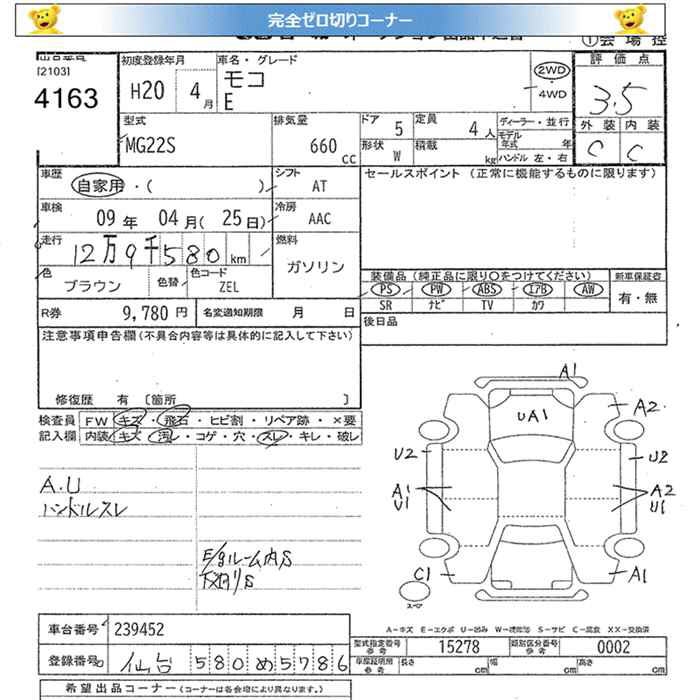 完全ゼロ切りコーナー
①会場控
[2103]
4163
初度登録年月
H20 4月
車名・グレード
モコ
E
2WD
・
4WD
評価点
3.5
外装 内装
C C
型式
MG22S
排気量
660 cc
ドア 5
定員 4人
形状 W
積載 kg
ディーラー・並行
モデル年式 年
ハンドル 左・右
車歴
自家用・( )
シフト AT
セールスポイント (正常に機能するものに限ります)
車検
09年 04月(25日)
冷房 AAC
走行
12万9千580km
燃料
ガソリン
色
ブラウン
色替
色コード
ZEL
装備品(純正品に限り○をつけてください)
PS PW ABS エアB AW
SR ナビ TV カワ
新車保証書
有・無
R券 9,780円
名変通知期限 月 日
後日品
注意事項申告欄(不具合内容等は具体的に記入して下さい)
修復歴 有 〔箇所 〕
検査員記入欄
FW キズ・飛石・ヒビ割・リペア跡・×要
内装 キズ・汚レ・コゲ・穴・スレ・キレ・破レ
A.U
ハンドルスレ
E/gルーム内S
下廻りS
A1
UA1
A2
U2
U2
A1
U1
A2
U1
C1
A1
スペア
A-キズ E-エクボ U-凹み W-補修跡 S-サビ C-腐食 XX-交換済
車台番号 239452
登録番号 仙台 580 め 5786
型式指定番号 参考 15278
類別区分番号 参考 0002
車庫証明用参考 長さ cm 幅 cm 高さ cm
希望出品コーナー(コーナーは各会場により異なります。)